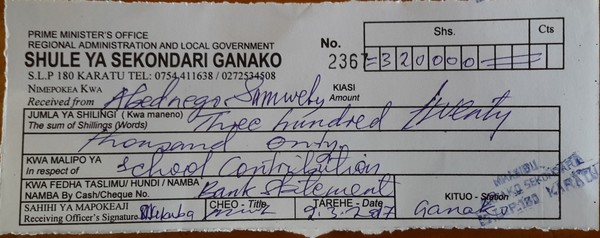 PRIME MINISTER'S OFFICE
REGIONAL ADMINISTRATION AND LOCAL GOVERNMENT
SHULE YA SEKONDARI GANAKO
S.L.P 180 KARATU TEL: 0754 411638 / 0272534508
No. 2367
Shs. Cts
=320000==
NIMEPOKEA KWA KIASI
Received from Abednego Samwely Amount
JUMLA YA SHILINGI (Kwa maneno) Three hundred twenty
The sum of Shillings (Words)
thousand only
KWA MALIPO YA School Contribution
In respect of
KWA FEDHA TASLIMU/ HUNDI / NAMBA Bank Statement
NAMBA By Cash/Cheque No.
SAHIHI YA MAPOKEAJI CHEO - Title TAREHE - Date KITUO - Station
Receiving Officer's Signature 9.3.2017 Ganako
180 KARATU